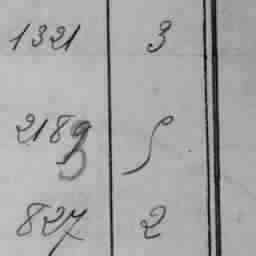 1321 3
2189 5
827 2